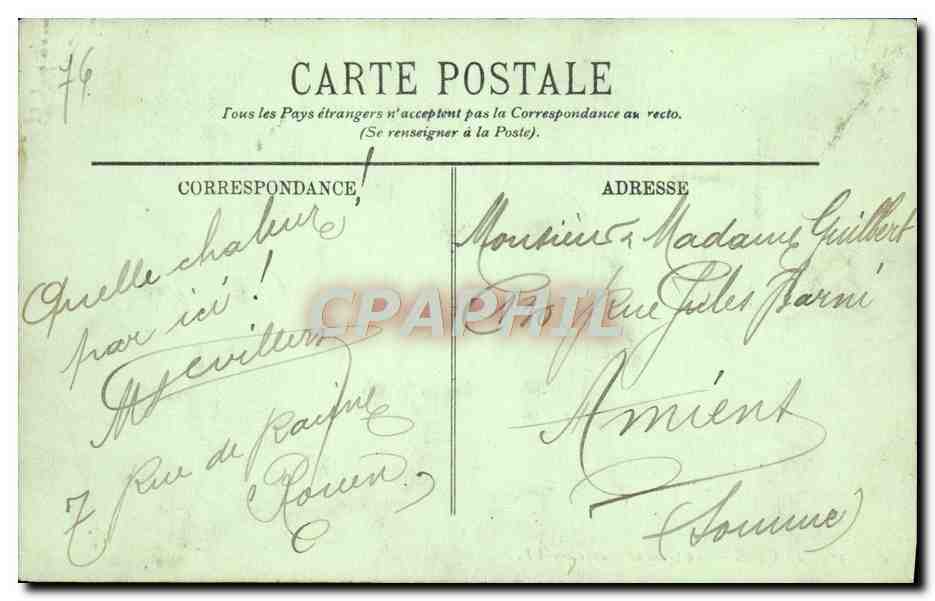 76
CARTE POSTALE
Tous les Pays étrangers n'acceptent pas la Correspondance au recto.
(Se renseigner à la Poste).
CORRESPONDANCE
ADRESSE
Quelle chaleur!
par ici!
7 Rue de
Rouen
Monsieur & Madame Guilbert
Rue Jules Barni
Amiens
(Somme)
CPAPHIL